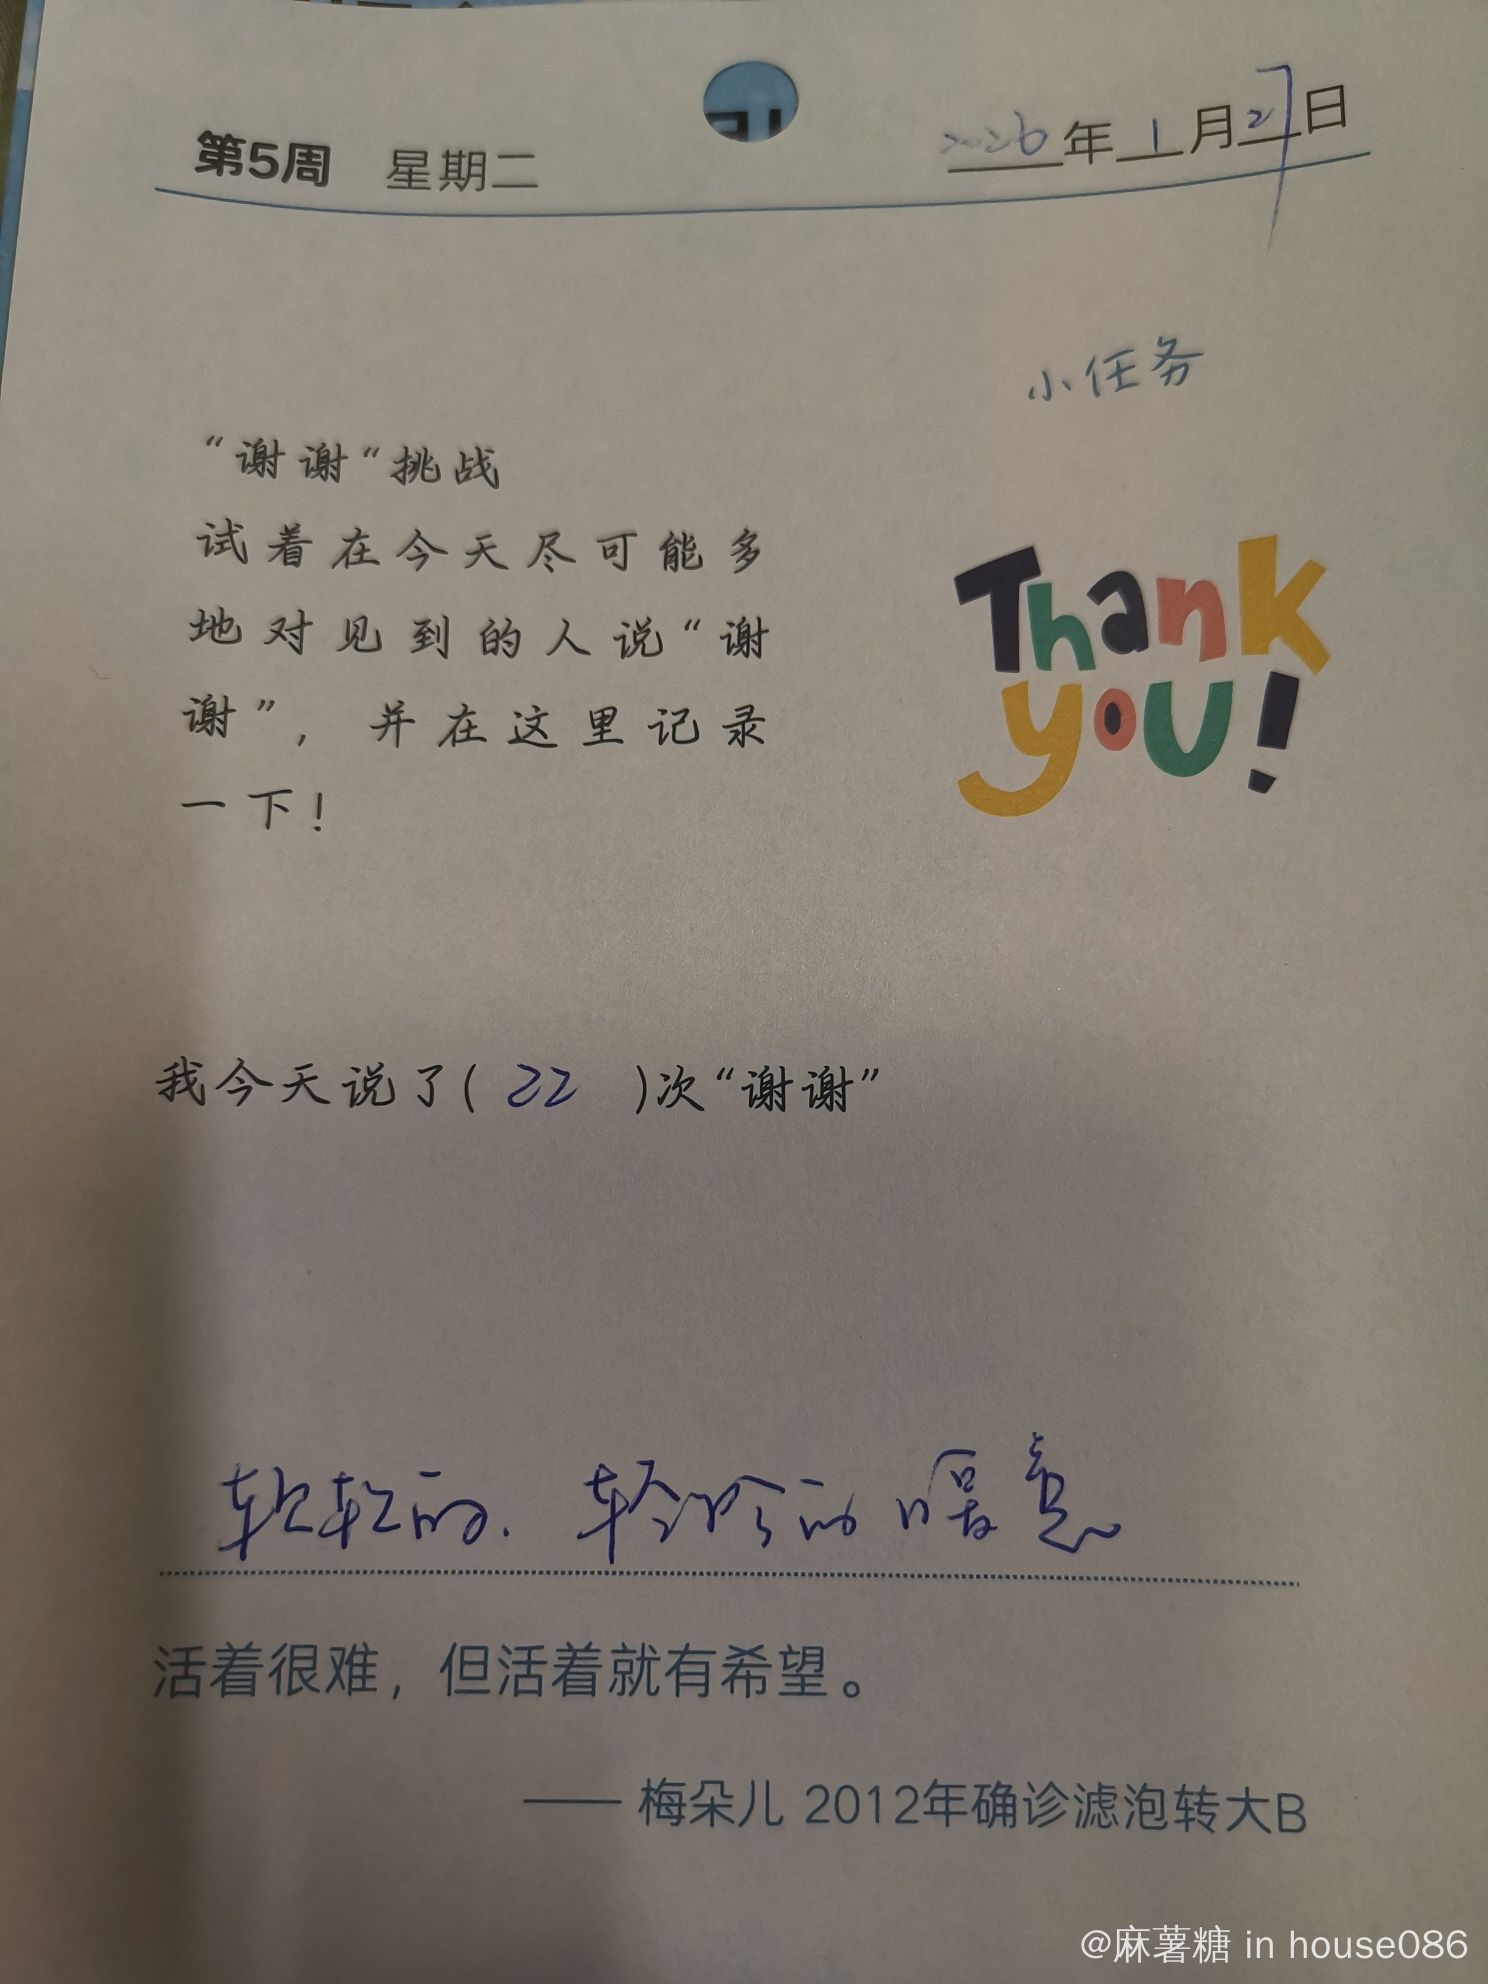 第5周 星期二 2026年1月27日
小任务
“谢谢“挑战
试着在今天尽可能多
地对见到的人说“谢
谢”，并在这里记录
一下！
Thank
you!
我今天说了( 22 )次“谢谢”
软软的、轻轻的暖意
活着很难，但活着就有希望。
—— 梅朵儿 2012年确诊滤泡转大B
@麻薯糖 in house086